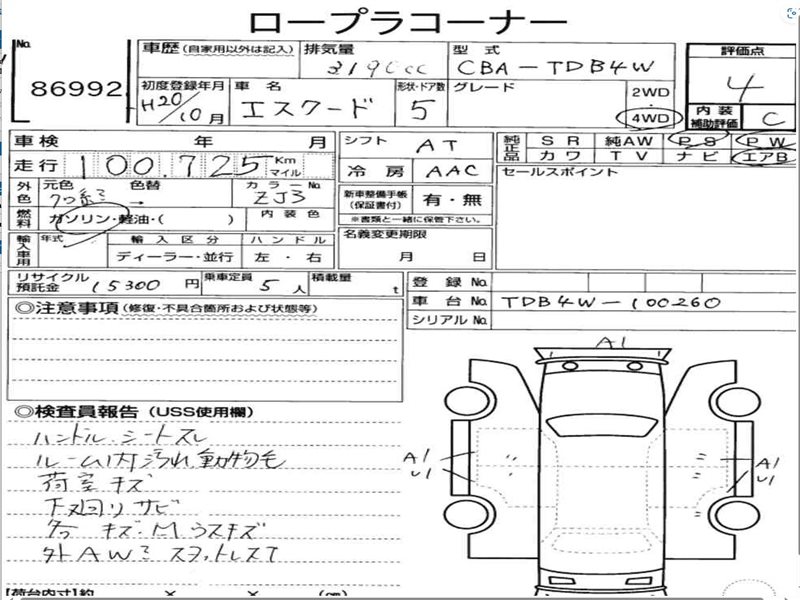 ロープラコーナー
No. 86992
車歴 (自家用以外は記入) 排気量 3196cc 型式 CBA-TDB4W 評価点 4
初度登録年月 H20/10月 車名 エスクード 形状・ドア数 5 グレード 2WD 4WD 内装補助評価 C
車検 年 月 シフト AT 純正品 SR 純AW PS PW
カワ TV ナビ エアB
走行 100,725 Km マイル 冷房 AAC セールスポイント
外色 元色 色替 → カラーNo. ZJ3 新車整備手帳(保証書付) 有・無
※書類と一緒に保管下さい。
燃料 ガソリン・軽油・( ) 内装色 名義変更期限 月 日
輸入車用 年式 輸入区分 ハンドル
ディーラー・並行 左・右
リサイクル預託金 15300円 乗車定員 5人 積載量 t 登録No.
車台No. TDB4W-100260
シリアルNo.
◎注意事項 (修復・不具合箇所および状態等)
◎検査員報告 (USS使用欄)
ハンドル、シートスレ
ルーム内汚れ、動物毛
荷室キズ
下廻りサビ
キズ・凹 ウスキズ
外AWミ スタットレスT
A1
A1
U1
A1
U1
【荷台内寸】約 × × (cm)